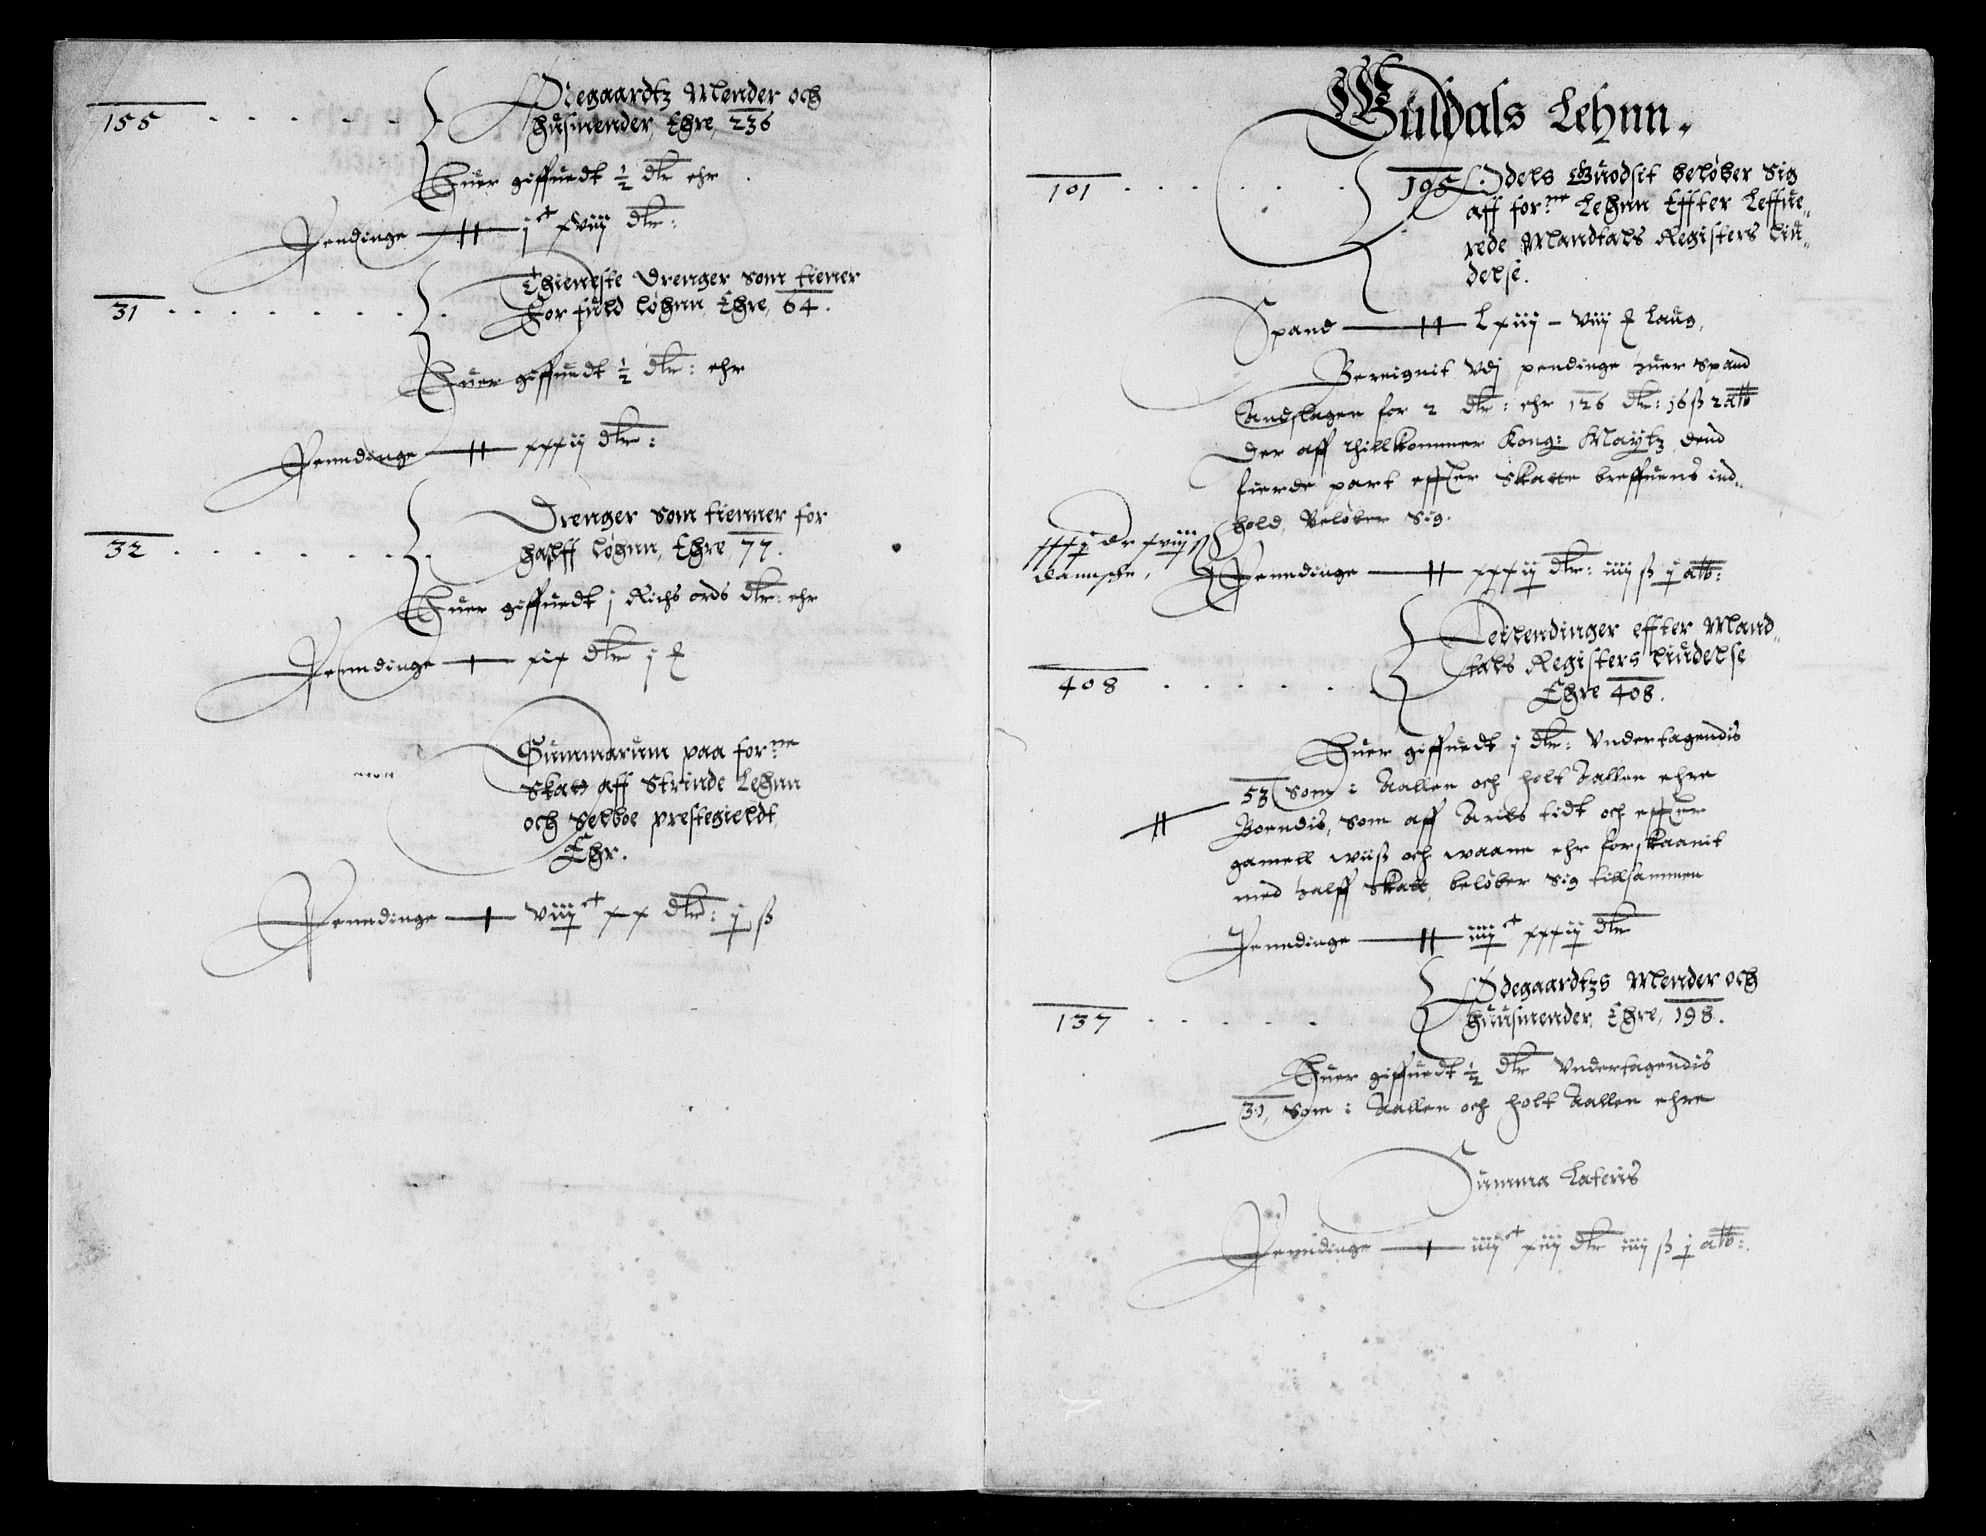 155 . . . . . . Ødegaardtz Mender och
hussmender, Ehre, 236
Huer giffuedt ½ dlr ehr
Pendinge — j^c xviij dlr:
31 . . . . . . . Thieneste Drenger som tiener
For fuld løhnn, Ehre, 64.
Huer giffuedt ½ dlr: ehr
Penndinge — xxxij dlr:
32 . . . . . . . Drenger som tienner for
halff løhnn, Ehre, 77.
Huer giffuedt j Richs ordt dlr: ehr
Penndinge — xix dlr j
Summarum paa for^ne
Skatt aff Strinde Lehnn
och Selboe prestegieldt,
Ehr.
Penndinge — viij^c xx dlr: ij ß
Guldals Lehnn.
101 . . . . . . 195 Odels Guodsit beløber Sig
aff for^ne Lehnn Effter Leffue„
rede Mandtals Registers liu„
delse.
Spand — Lxiij – viij laug,
Bereignit Vdj pendinge huer Spand
Landslagen for 2 dlr: ehr 126 dlr: 16 ß 2 alb
Der aff thillkommer Kong: Maytz, dend
fierde part effter Skatte breffuens ind„
hold, Beløber Sig.
danische,
Penndinge — xxxij dlr: iiij ß j alb:
408 . . . . . . Leilendinger effter Mand„
tals Registers liudelse
Ehre 408.
Huer giffuedt j dlr: Vndertagendis
53 Som i Aallen och Holt Aallen ehre
Boendis, Som aff Arils tidt och effter
gamell wiiß och waane ehr forskaanit
med halff Skatt, beløber Sig tillsammen
Penndinge — iij^c xxxij dlr
137 . . . . . Ødegaardtzs Mender och
huusmender, Ehre, 198.
Huer giffuedt ½ dlr Vndertagendis
31, Som i Aallen och Holt Aallen ehre
Summa Lateris
Penndinge — iiij^c xiij dlr iiij ß j alb: